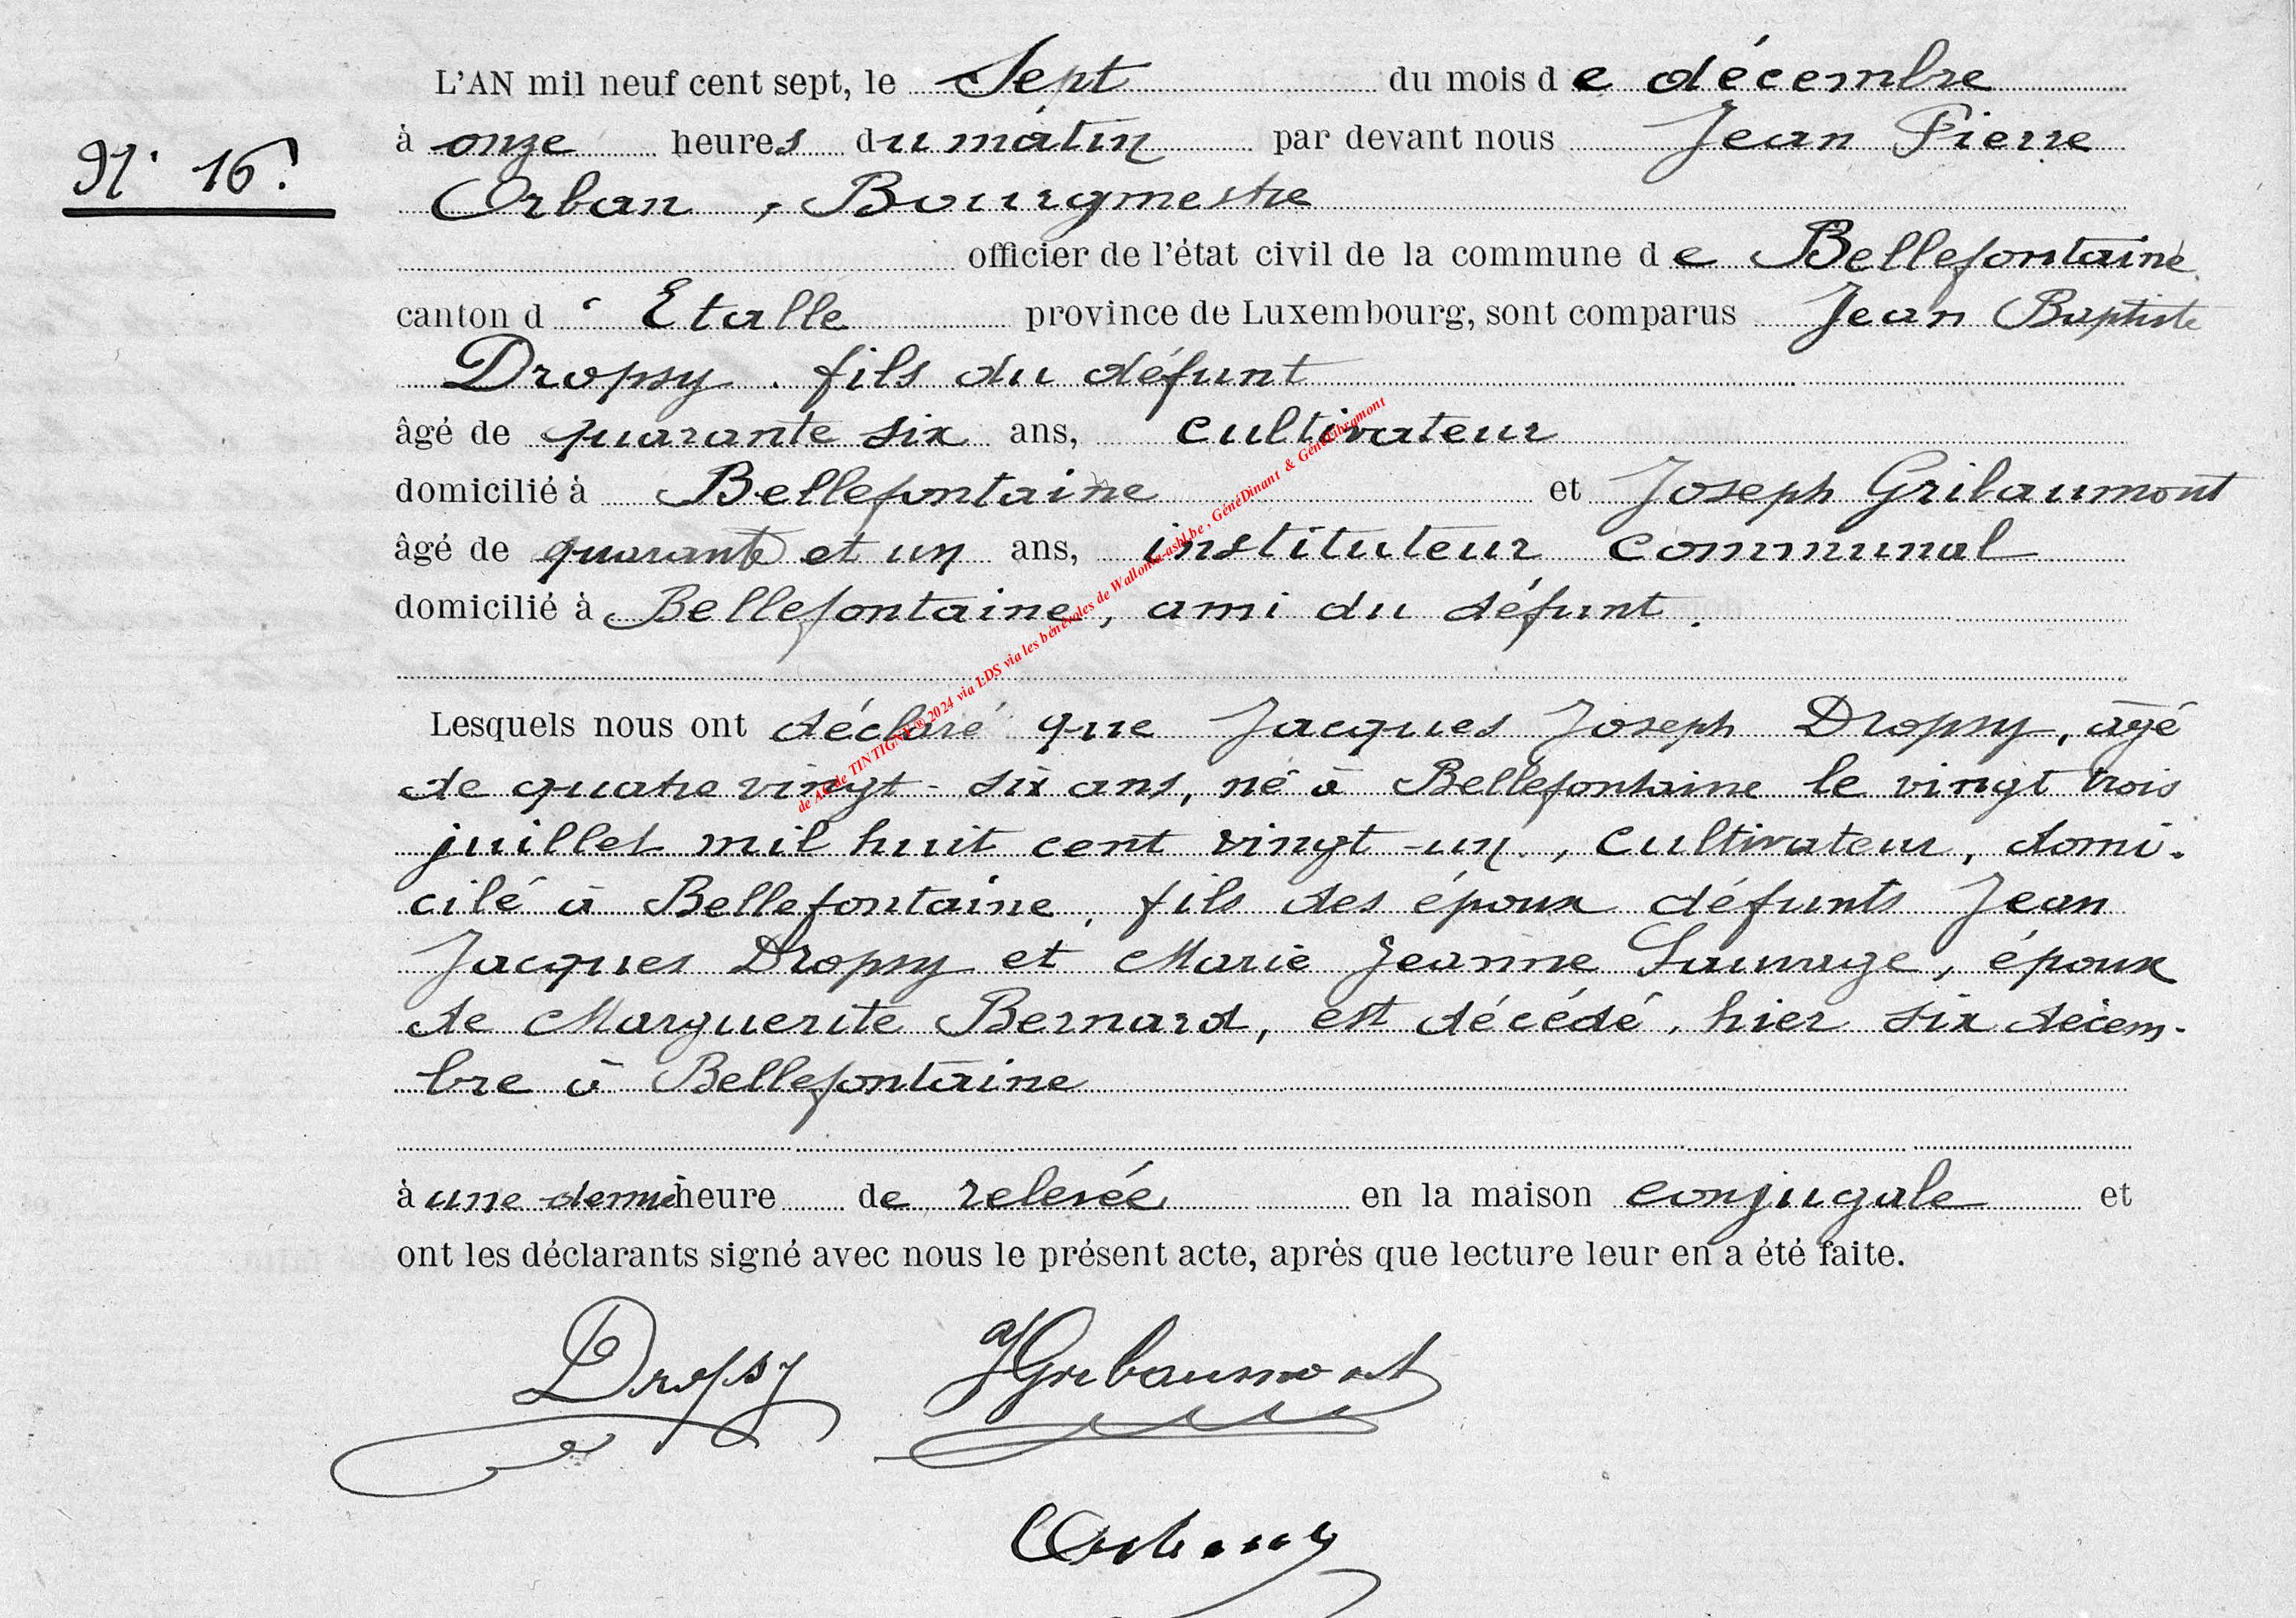 L'AN mil neuf cent sept, le Sept du mois de décembre
à onze heures du matin par devant nous Jean Pierre
N° 16.
Orban, Bourgmestre
officier de l'état civil de la commune de Bellefontaine
canton d'Etalle province de Luxembourg, sont comparus Jean Baptiste
Dropsy. fils du défunt
âgé de quarante six ans, cultivateur
domicilié à Bellefontaine et Joseph Gribaumont
âgé de quarante et un ans, instituteur communal
domicilié à Bellefontaine, ami du défunt.
Lesquels nous ont déclaré que Jacques Joseph Dropsy, âgé
de quatre vingt-six ans, né à Bellefontaine le vingt trois
juillet mil huit cent vingt-un, cultivateur, domi-
cilé à Bellefontaine, fils des époux défunts Jean
Jacques Dropsy et Marie Jeanne Sauvage, époux
de Marguerite Bernard, est décédé, hier six décem-
bre à Bellefontaine
à une demi heure de relevée en la maison conjugale et
ont les déclarants signé avec nous le présent acte, après que lecture leur en a été faite.
Dropsy JGribaumont
Orban
de AC de TINTIGNY ® 2024 via LDS via les bénévoles de Wallonia-asbl.be, GénéDinant & GénéLibramont